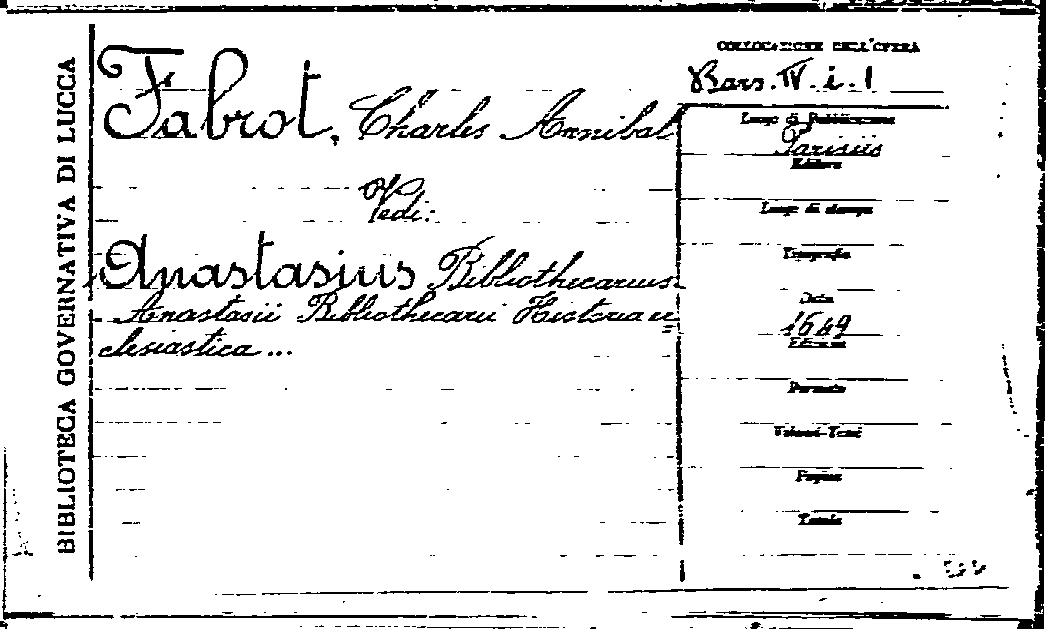 BIBLIOTECA GOVERNATIVA DI LUCCA
Fabrot, Charles Annibal
Vedi:
Anastasius Bibliothecarius
Anastasii Bibliothecarii Historia ec=
clesiastica...
COLLOCAZIONE DELL'OPERA
Bars. IV. i. 1
Luogo di Pubblicazione
Parisiis
Editore
Luogo di stampa
Tipografia
Data
1649
Edizione
Formato
Volumi-Tomi
Pagine
Tavole